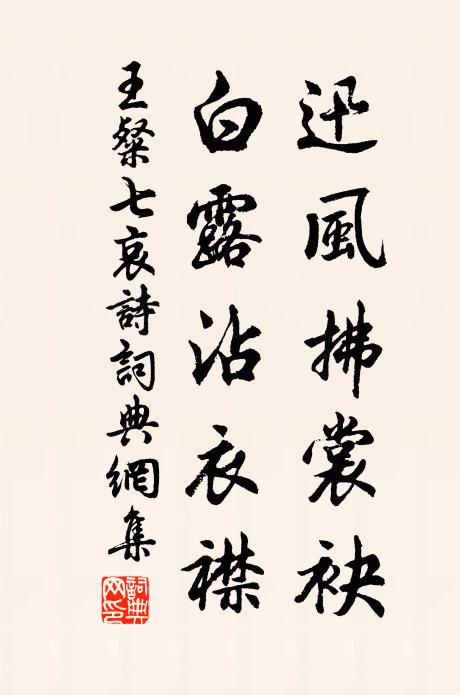 迅風拂裳袂
白露沾衣襟
王粲七哀詩詞典網集
詞典網印